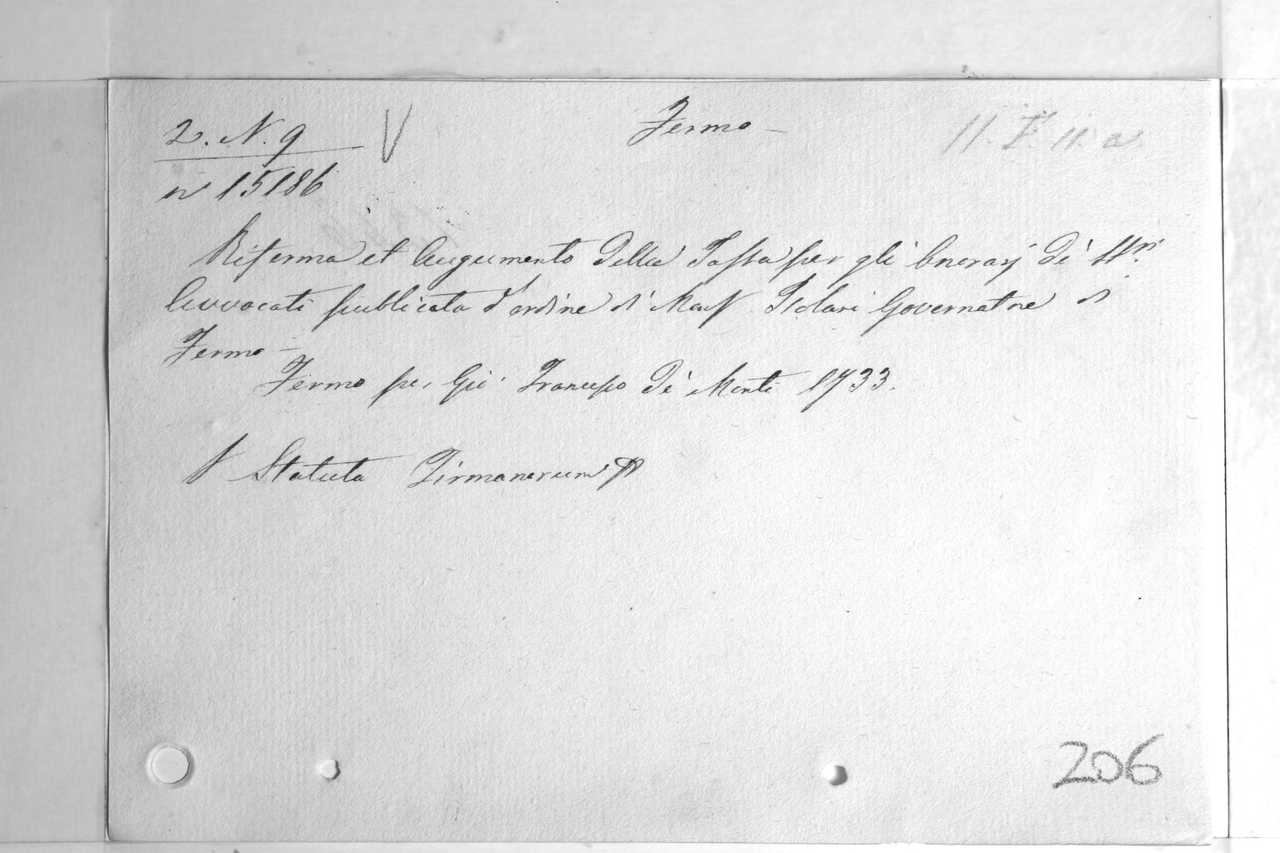 2. N. 9
V
Fermo -
11. F. 11. a
n 15186
Riforma et Augumento della Tassa per gli Onorarj de' SSri
Avvocati publicata d'ordine di Monsr Governatore di
Fermo -
Fermo per Gio: Francesco De' Monti 1733.
V Statuta Firmanorum
206